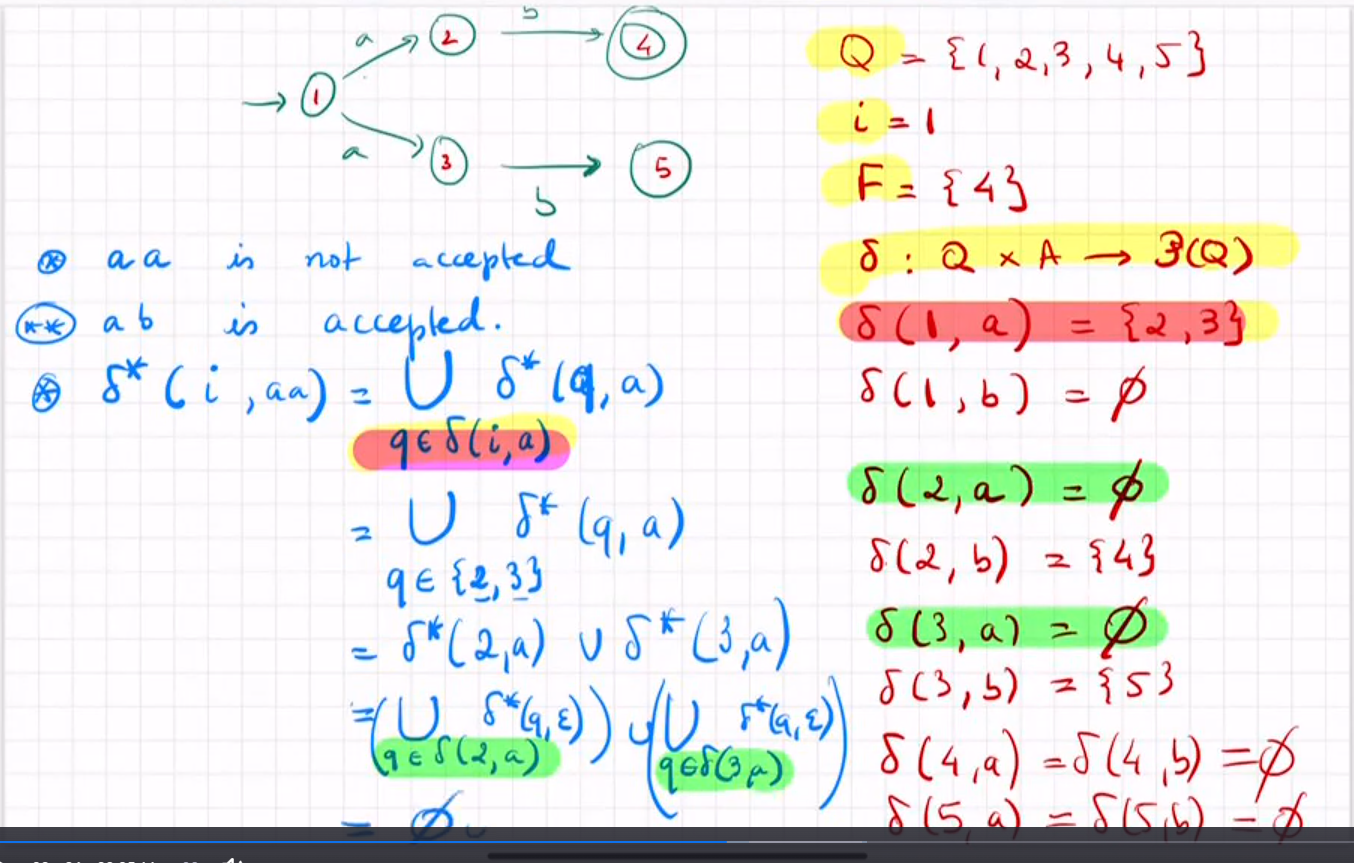 a 2 b 4
→ 1
a 3 b 5
⊛ aa is not accepted
(**) ab is accepted.
⊛ δ*(i, aa) = ⋃ δ*(q, a)
q ∈ δ(i, a)
= ⋃ δ*(q, a)
q ∈ {2, 3}
= δ*(2, a) ∪ δ*(3, a)
= (⋃ δ*(q, ε)) ∪ (⋃ δ*(q, ε))
q ∈ δ(2, a) q ∈ δ(3, a)
= ∅ ∪
Q = {1, 2, 3, 4, 5}
i = 1
F = {4}
δ : Q × A → P(Q)
δ(1, a) = {2, 3}
δ(1, b) = ∅
δ(2, a) = ∅
δ(2, b) = {4}
δ(3, a) = ∅
δ(3, b) = {5}
δ(4, a) = δ(4, b) = ∅
δ(5, a) = δ(5, b) = ∅